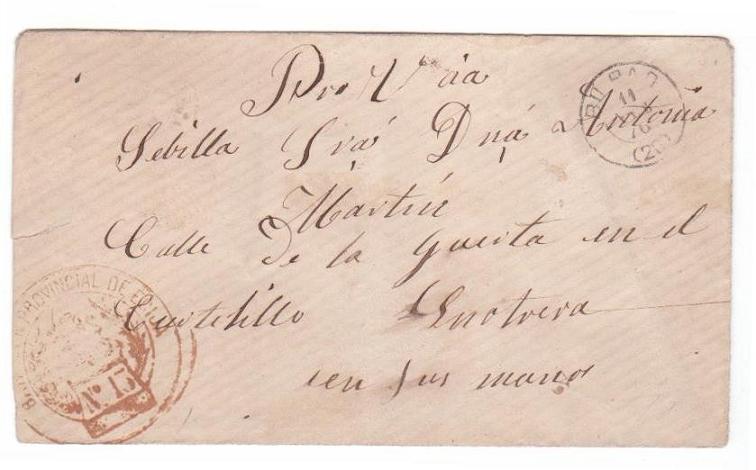 Pro Via
Sebilla Srá Dná Antonia
Martín
Calle De la guerta en el
Cuartelillo
en sus manos
BILBAO
11
76
(20)
PROVINCIAL DE
Nº 13